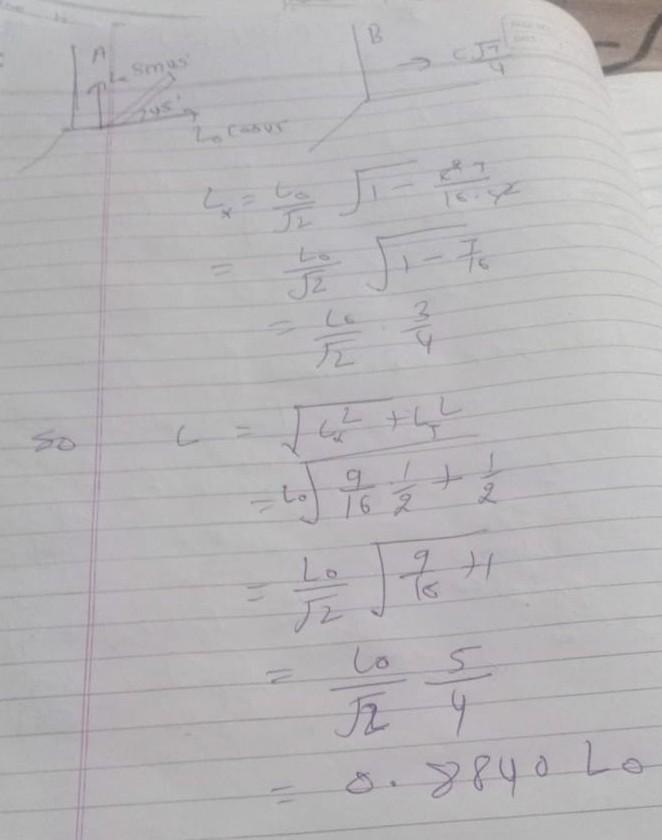 A
L₀ sin45°
45°
L₀ cos45
B
→ c√7/4
Lₓ = L₀/√2 √(1 − c² 7/16 · c²)
= L₀/√2 √(1 − 7/16)
= L₀/√2 · 3/4
So L = √(Lₓ² + L_y²)
= L₀ √(9/16 · 1/2 + 1/2)
= L₀/√2 √(9/16 + 1)
= L₀/√2 5/4
= 0.8840 L₀